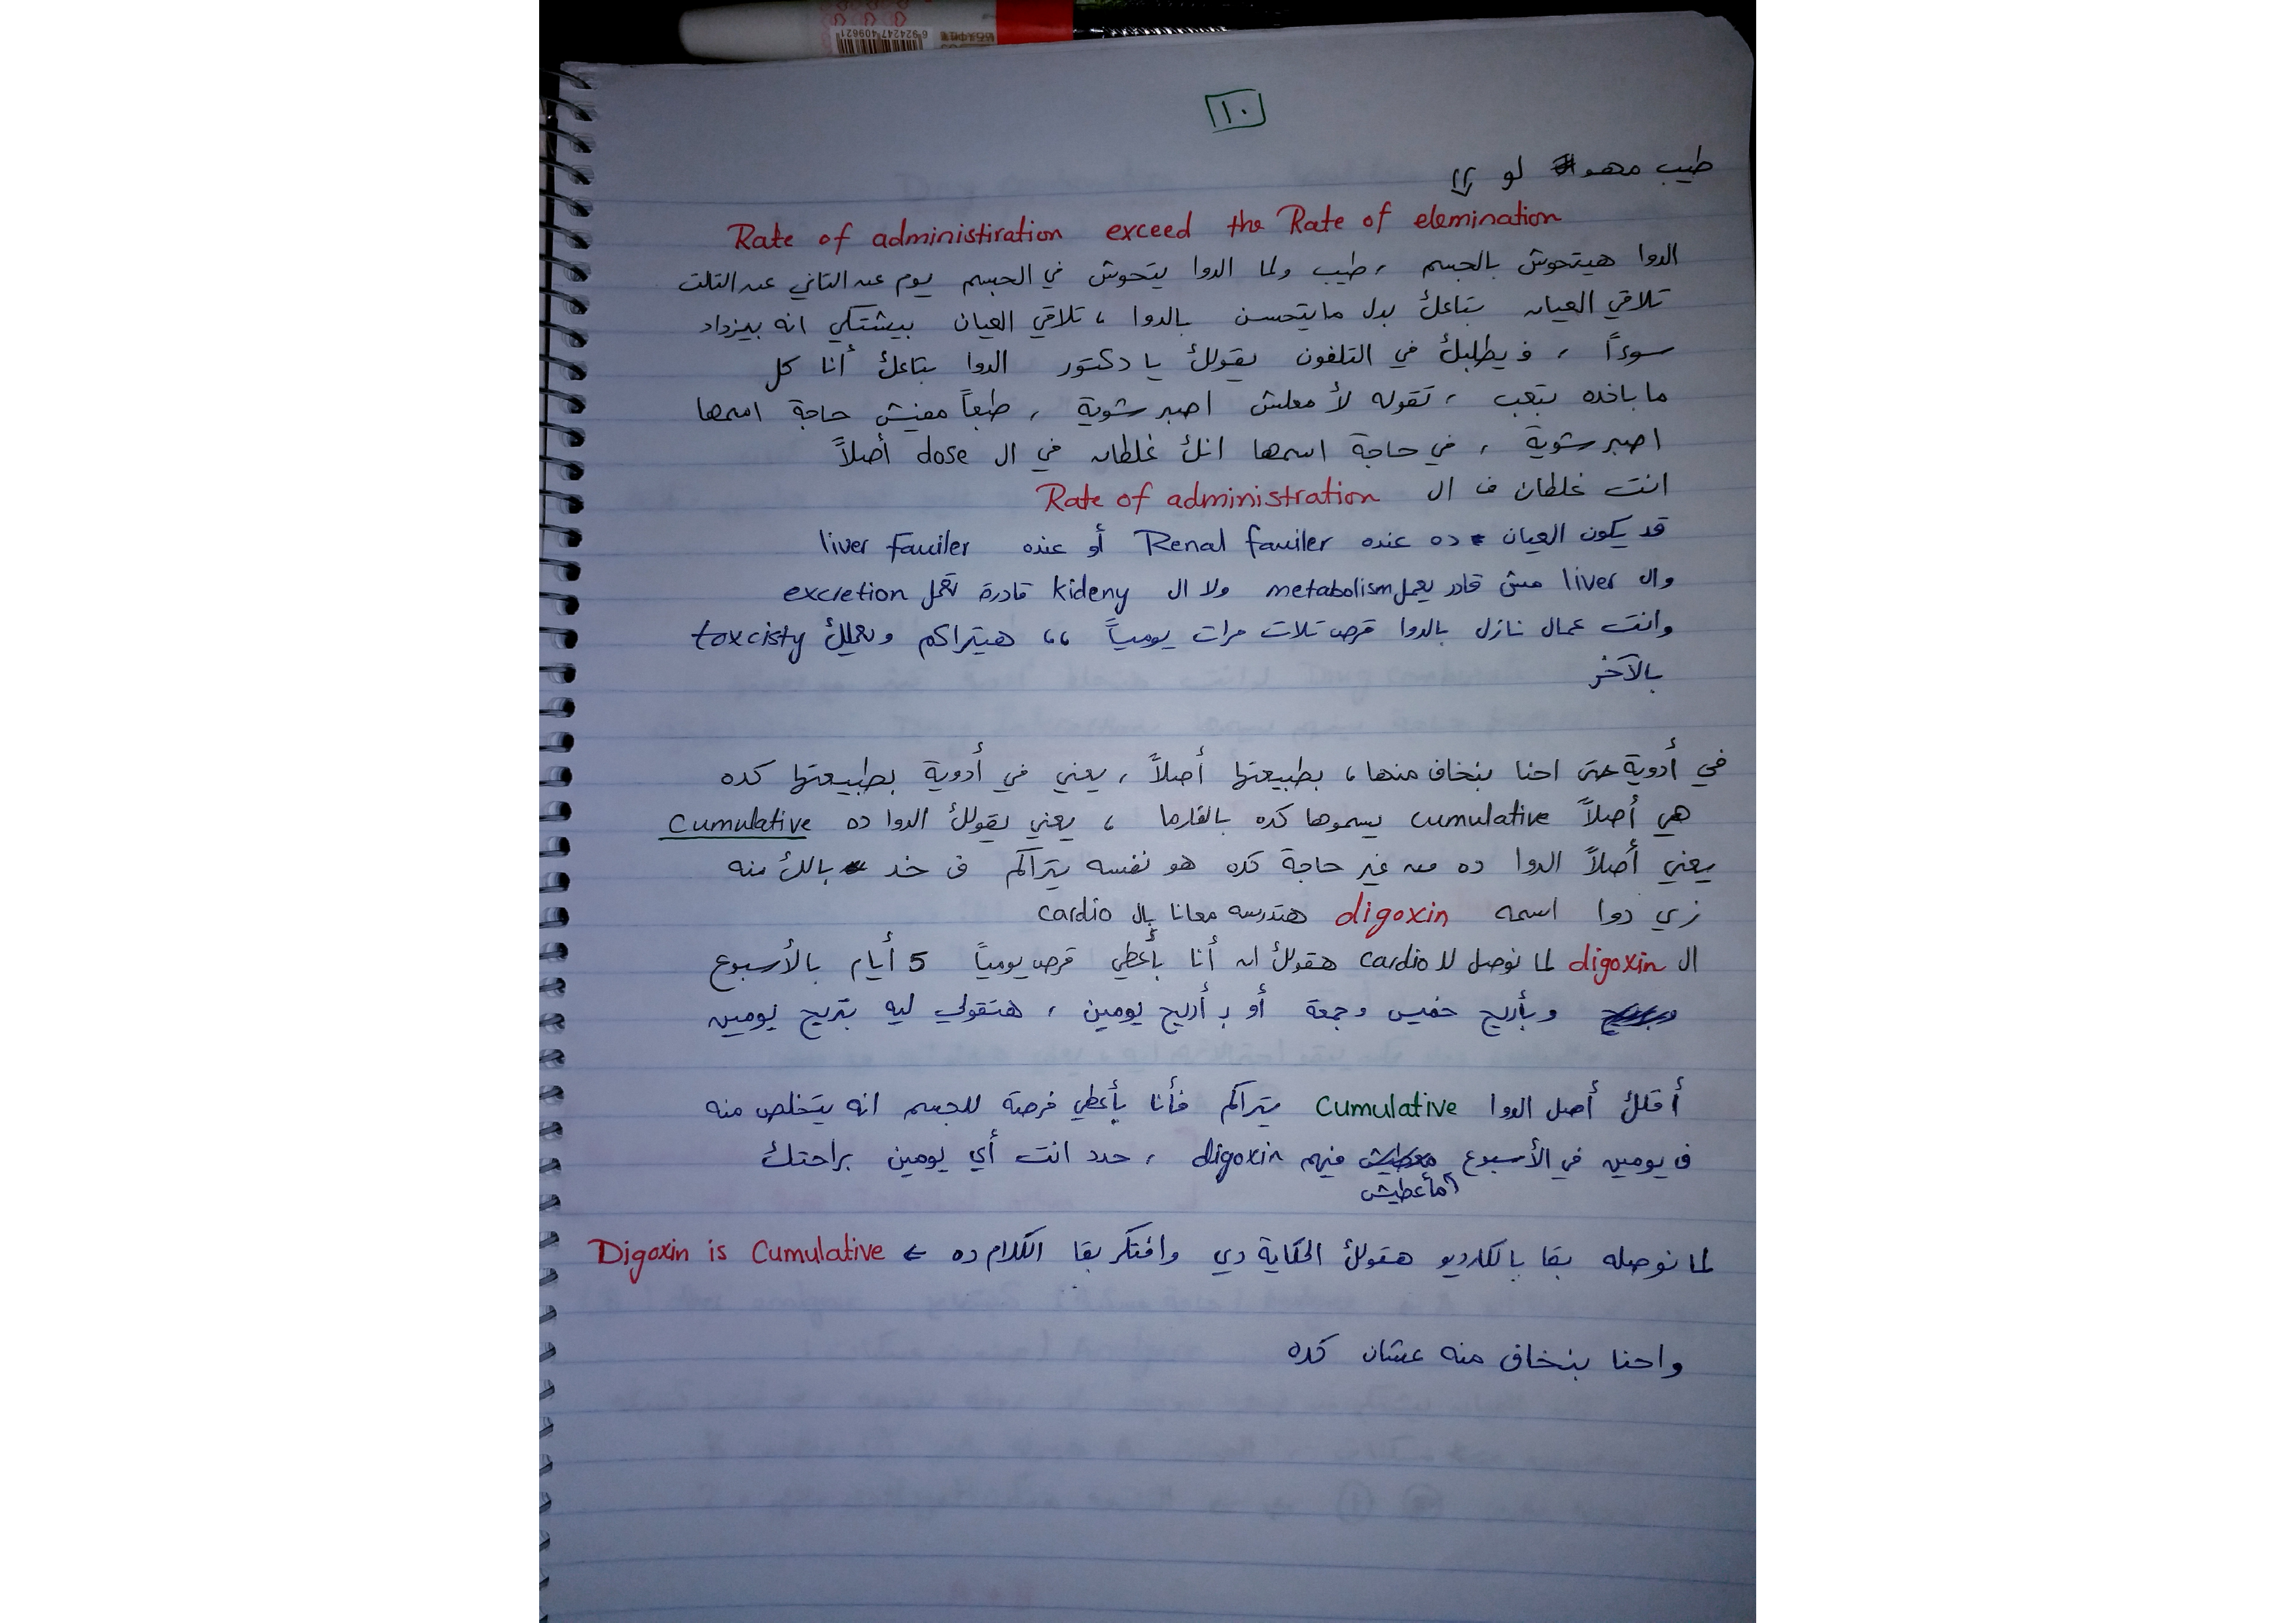 6 924247 409621
١٠
طيب مهو لو
Rate of administiration exceed the Rate of elemination
الدوا هيتحوش بالجسم ، طيب ولما الدوا يتحوش في الجسم يوم عن التاني عن التلت
تلاقي العيان بتاعك بدل مايتحسن بالدوا ، تلاقي العيان بيشتكي انه بيزداد
سوءاً ، فيطلبك في التلفون يقولك يا دكتور الدوا بتاعك أنا كل
ما باخده بتعب ، تقوله لأ معلش اصبر شوية ، طبعاً مفيش حاجة اسمها
اصبر شوية ، في حاجة اسمها انك غلطان في ال dose أصلاً
انت غلطان ف ال Rate of administration
قد يكون العيان ده عنده Renal fauiler أو عنده liver fauiler
وال liver مش قادر يعمل metabolism ولا ال kideny قادرة تعمل excretion
وانت عمال نازل بالدوا قرص تلات مرات يومياً ،، هيتراكم ويعملك toxcisty
بالآخر
في أدوية حتى احنا بنخاف منها ، بطبيعتها أصلاً ، يعني في أدوية بطبيعتها كده
هي أصلاً cumulative يسموها كده بالفارما ، يعني يقولك الدوا ده Cumulative
يعني أصلاً الدوا ده من غير حاجة كده هو نفسه يتراكم ف خد بالك منه
زي دوا اسمه digoxin هتدرسه معانا بال cardio
ال digoxin لما نوصل للـ cardio هقولك ان أنا بأعطي قرص يومياً 5 أيام بالأسبوع
وبأريح خميس وجمعة أو بـ أريح يومين ، هتقولي ليه بتريح يومين
أقلك أصل الدوا Cumulative يتراكم فأنا بأعطي فرصة للجسم انه يتخلص منه
ف يومين في الأسبوع مأعطيش فيهم digoxin ، حدد انت أي يومين براحتك
لما نوصله بقا بالكارديو هقولك الحكاية دي وافتكر بقا الكلام ده ← Digoxin is Cumulative
واحنا بنخاف منه عشان كده